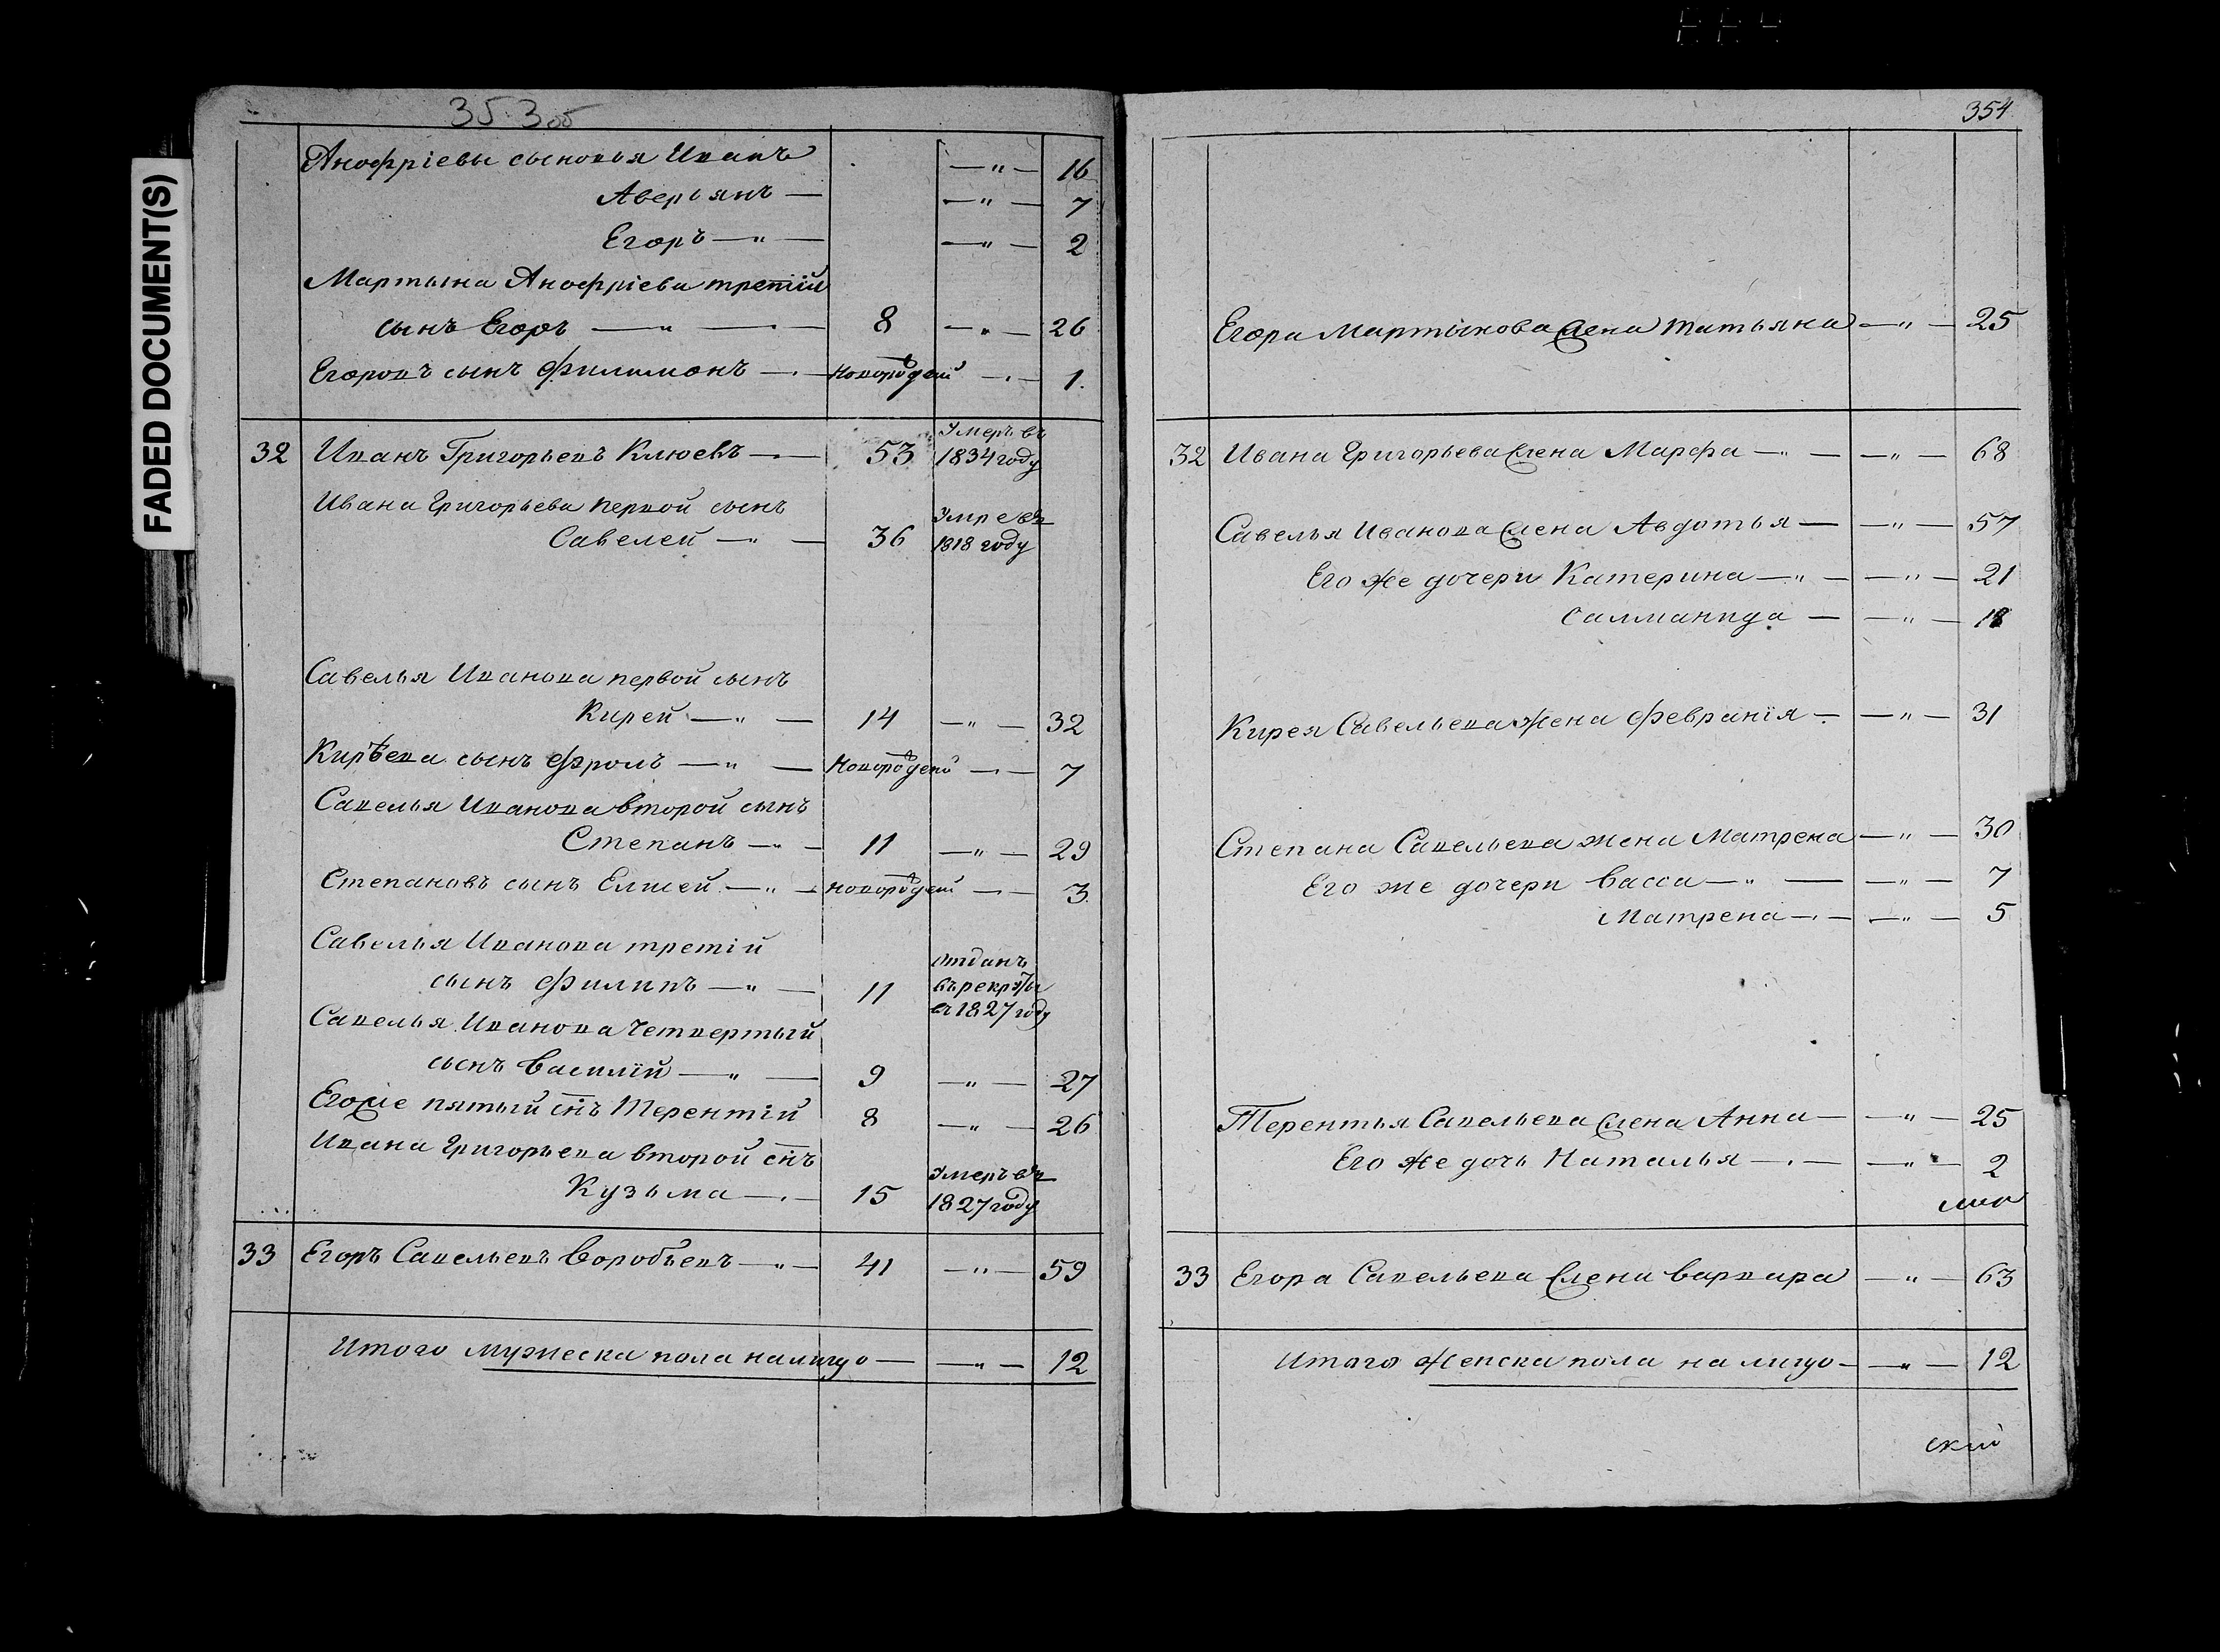 FADED DOCUMENT(S)
353 об
Анофріевы сыновья Иванъ — " — 16
Аверьянъ — — " — 7
Егоръ — " — — " — 2
Мартына Анофріева третій
сынъ Егоръ — " — 8 — " — 26
Егоровъ сынъ Филимонъ — новорожденій — 1.
32 Иванъ Григорьевъ Клюевъ — 53 Умеръ въ
1834 году
Ивана Григорьева первой сынъ
Савелей — " — 36 Умре въ
1818 году
Савелья Иванова первой сынъ
Кирей — " — 14 — " — 32
Кирѣева сынъ Фролъ — " — новорожденій — 7
Савелья Иванова второй сынъ
Степанъ — " — 11 — " — 29
Степановъ сынъ Елисей — " — новорожденій — 3
Савелья Иванова третій
сынъ Филипъ — " — 11 отданъ
въ рекруты
въ 1827 году
Савелья Иванова четвертый
сынъ Василій — " — 9 — " — 27
Егоже пятый снъ Терентій 8 — " — 26
Ивана Григорьева второй снъ
Кузьма — 15 Умеръ въ
1827 году
33 Егоръ Савельевъ Воробьевъ — " — 41 — " — 59
Итого мужеска пола налицо — — " — 12
354
Егора Мартынова жена Татьяна — " — 25
32 Ивана Григорьева жена Марфа — " — — " — 68
Савелья Иванова жена Авдотья — — " — 57
Его же дочери Катерина — " — — " — 21
Салманида — — " — 18
Кирея Савельева жена Февранія — — " — 31
Степана Савельева жена Матрена — " — 30
Его же дочери Васса — " — — " — 7
Матрена — — " — 5
Терентья Савельева жена Анна — — " — 25
Его же дочь Наталья — — " — 2
33 Егора Савельева жена Варвара — " — 63
Итого женска пола на лицо — — " — 12
ской